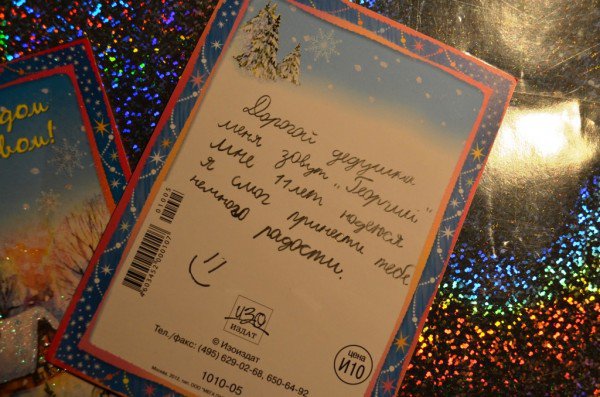 дом
вом!
Дорогой дедушка
меня зовут "Георгий"
Мне 11 лет надеюся
я смог принести тебе
немного радости.
01005
4603452000107
ИЗО
ИЗДАТ
© Изоиздат
Тел./факс: (495) 629-02-68, 650-64-92
1010-05
цена
И10